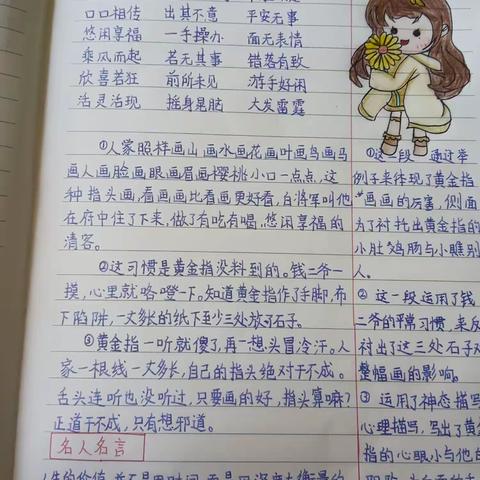 口口相传 出其不意 平安无事
悠闲享福 一手操办 面无表情
乘风而起 若无其事 错落有致
欣喜若狂 前所未见 游手好闲
活灵活现 摇身是胎 大发雷霆
①人家照样画山画水画花画叶画鸟画马
画人画脸画眼画眉画樱桃小口一点点,这
种指头画,看画画比看画更好看,白将军叫他
在府中住了下来,做了有吃有喝,悠闲享福的
清客。
②这习惯是黄金指没料到的。钱二爷一
摸,心里就咯噔一下。知道黄金指作了手脚,布
下陷阱,一丈多长的纸下至少三处放了石子。
③黄金指一听就傻了,再一想头冒冷汗。人
家一根线一丈多长,自己的指头绝对干不成。
舌头连听也没听过,只要画的好,指头算嘛?
正道干不成,只有想邪道。
名人名言
①这一段 通过举
例子来体现了黄金指
画画的厉害,侧面
为了衬托出黄金指的
小肚鸡肠与小瞧别
人。
②这一段运用了钱
二爷的平常习惯,来反
衬出了这三处石子对
整幅画的影响。
③运用了神态描写
心理描写,写出了黄金
指的心眼小与他的